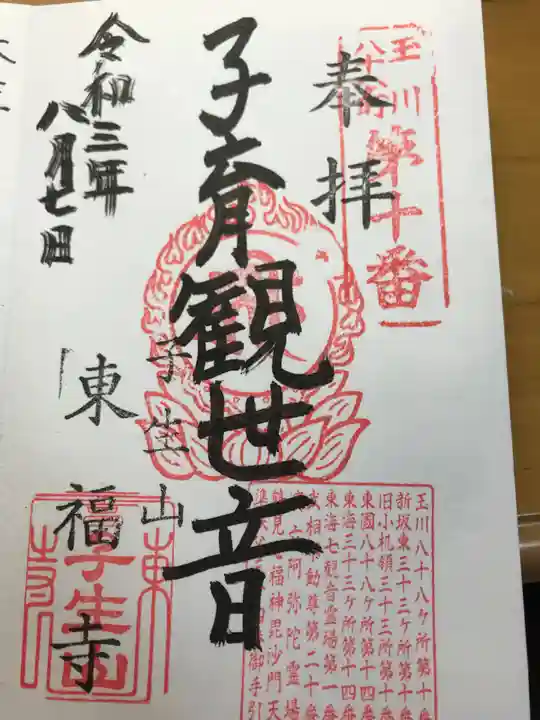 玉川
八十八ヶ所
第十番
奉拝
子育観世音
子生山
東福寺
令和三年
八月七日
玉川八十八ヶ所第十番
新坂東三十三ヶ所第十番
旧小机領三十三所第十
東國八十八ヶ所第十四
東海三十三ヶ所第十四
東海七観音霊場第一
武相不動尊第二十
阿弥陀霊場
鶴見七福神毘沙門天
御手引